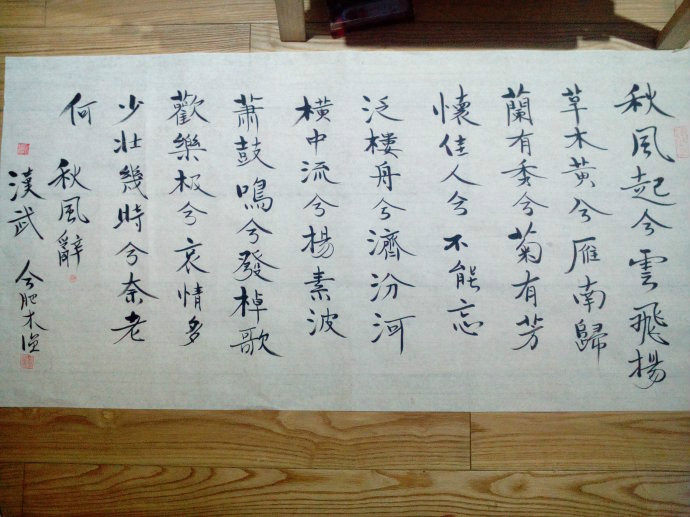 秋風起兮雲飛楊
草木黃兮雁南歸
蘭有秀兮菊有芳
懷佳人兮不能忘
泛樓舟兮濟汾河
橫中流兮楊素波
蕭鼓鳴兮發棹歌
歡樂极兮哀情多
少壯幾時兮奈老
何 秋風辭
漢武 合肥木